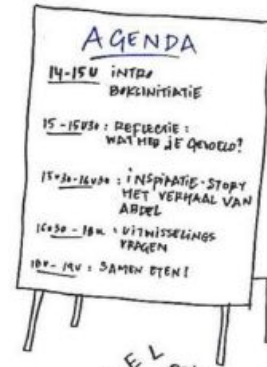 AGENDA
14-15U INTRO
BOKSINITIATIE
15-15U30: REFLECTIE:
WAT HEB JE GEVOELD?
15U30-16U30: INSPIRATIE-STORY
HET VERHAAL VAN
ABDEL
16U30-18U: UITWISSELINGS
VRAGEN
18U-19U: SAMEN ETEN!
EL